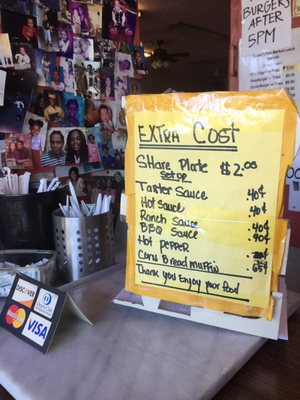 BURGERS
AFTER
5 PM
EXTRA COST
Share Plate $2.00
Setup
Tarter Sauce .40¢
Hot Sauce
Ranch Sauce .40¢
BBQ Sauce .40¢
Hot Pepper
Corn Bread Muffin .65¢
Thank you Enjoy your Food
DISCOVER
MasterCard
VISA